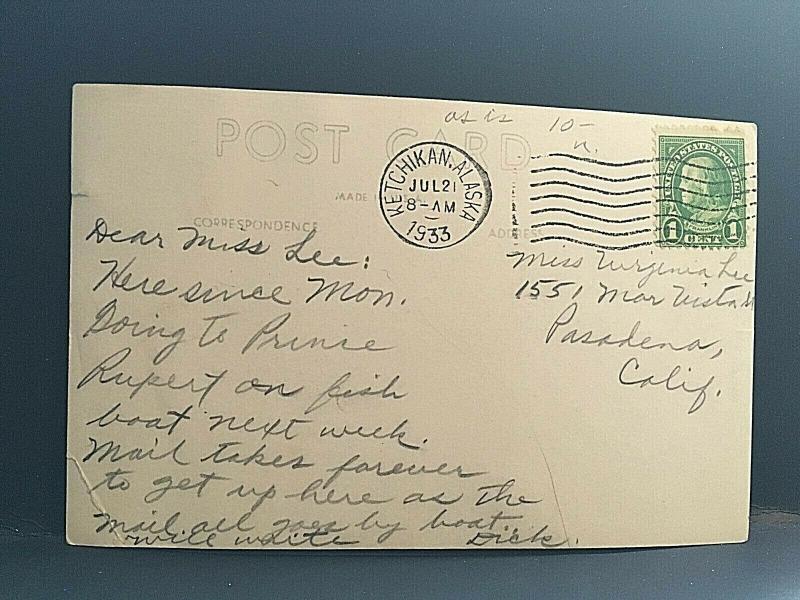 as is 10-
POST CARD
KETCHIKAN, ALASKA
JUL 21
8-AM
1933
UNITED STATES POSTAGE
1 CENT 1
MADE
CORRESPONDENCE
ADDRESS
Dear Miss Lee:
Here since Mon.
Going to Prince
Rupert on fish
boat next week.
Mail takes forever
to get up here as the
mail all goes by boat.
will write Dick.
Miss Virginia Lee
1551 Mar Vista
Pasadena,
Calif.